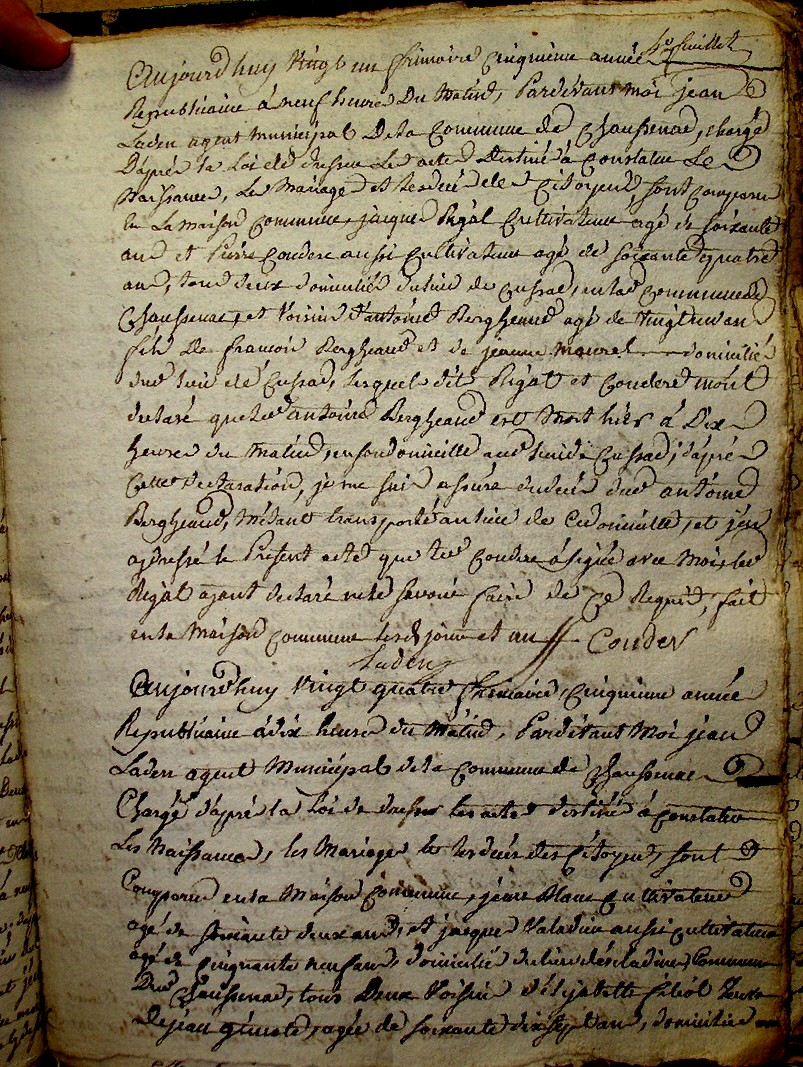 4e feuillet
Aujourd'huy vingt un frimaire cinquieme année
Republicaine a neuf heures du matin, Pardevant moi jean
Laden agent municipal de la Commune de Chaussenac, chargé
d'après la loi de dresser les actes destinés a constater les
Naissances, les Mariages et les décés des Citoyens, sont comparus
en La maison commune, jacques Rigal Cultivateur agé de soixante
ans et Pierre Couderc aussi cultivateur agé de soixante quatre
ans, tous deux domiciliés du lieu de Cussac, en la Commune de
Chaussenac, et voisins d'antoine Bergheaud agé de vingt un an
fils de francois Bergheaud et de jeanne Maurel domicilié
dud lieu de Cussac, lesquels dits Rigal et Couderc m'ont
declaré que led antoine Bergheaud est mort hier a dix
heures du matin, en son domicille aud lieu de Cussac; d'après
Cette declaration, je me suis assuré du décés dud antoine
Bergheaud, m'étant transporté au lieu de ce domicille, et j'en
ay dressé le Present acte que led Couderc a signé avec moi, led
Rigal ayant declaré ne le savoir faire de ce Requis, fait
en la Maison Commune lesd jour et an Couder
Laden
Aujourd'huy vingt quatre frimaire, Cinquieme année
Republicaine a dix heures du matin, Pardevant Moi jean
Laden agent Municipal de la Commune de Chaussenac
Chargé d'après la Loi de dresser les actes destinés a constater
Les Naissances, les Mariages et les décés des Citoyens, sont
Comparus en la Maison Commune, jean Blanc Cultivateur
agé de soixante deux ans, et jacques Valadier aussi cultivateur
agé de cinquante neuf ans, domiciliés du lieu Commune
Dud Chaussenac, tous Deux Voisins d'elizabette filiol Veuve
de jean agée de soixante dix sept ans, domiciliée